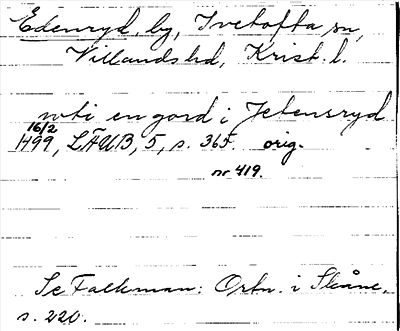 Edenryd, by, Ivetofta sn,
Villands hd, Krist. l.
wti en gord i Jetensryd
16/2
1499, LÄUB, 5, s. 365. orig.
nr 419.
Se Falkman: Ortn. i Skåne,
s. 220.